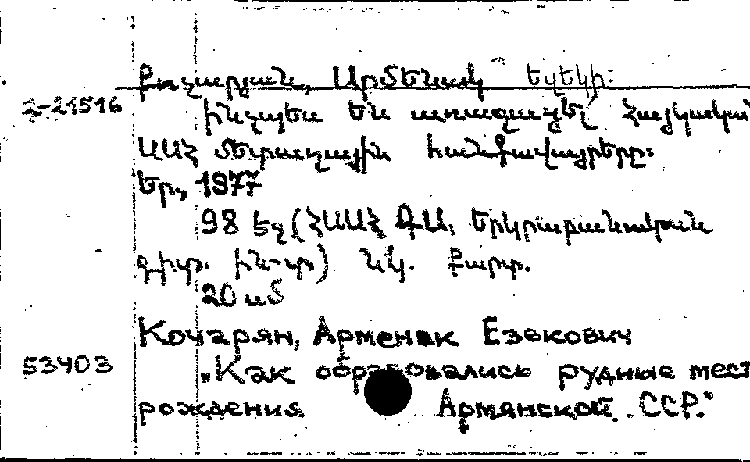 Քոչարյան, Արմենակ Եզեկի:
2-21516 Ինչպես են առաջացել Հայկական
ՍՍՀ մետաղային հանքավայրերը:
Եր., 1977
98 էջ (ՀՍՍՀ ԳԱ, Երկրաբանական
գիտ. ին-տ) նկ. քարտ.
20 սմ
Кочарян, Арменак Езекович
53403 „Как образовались рудные мест
рождения Армянской ССР."